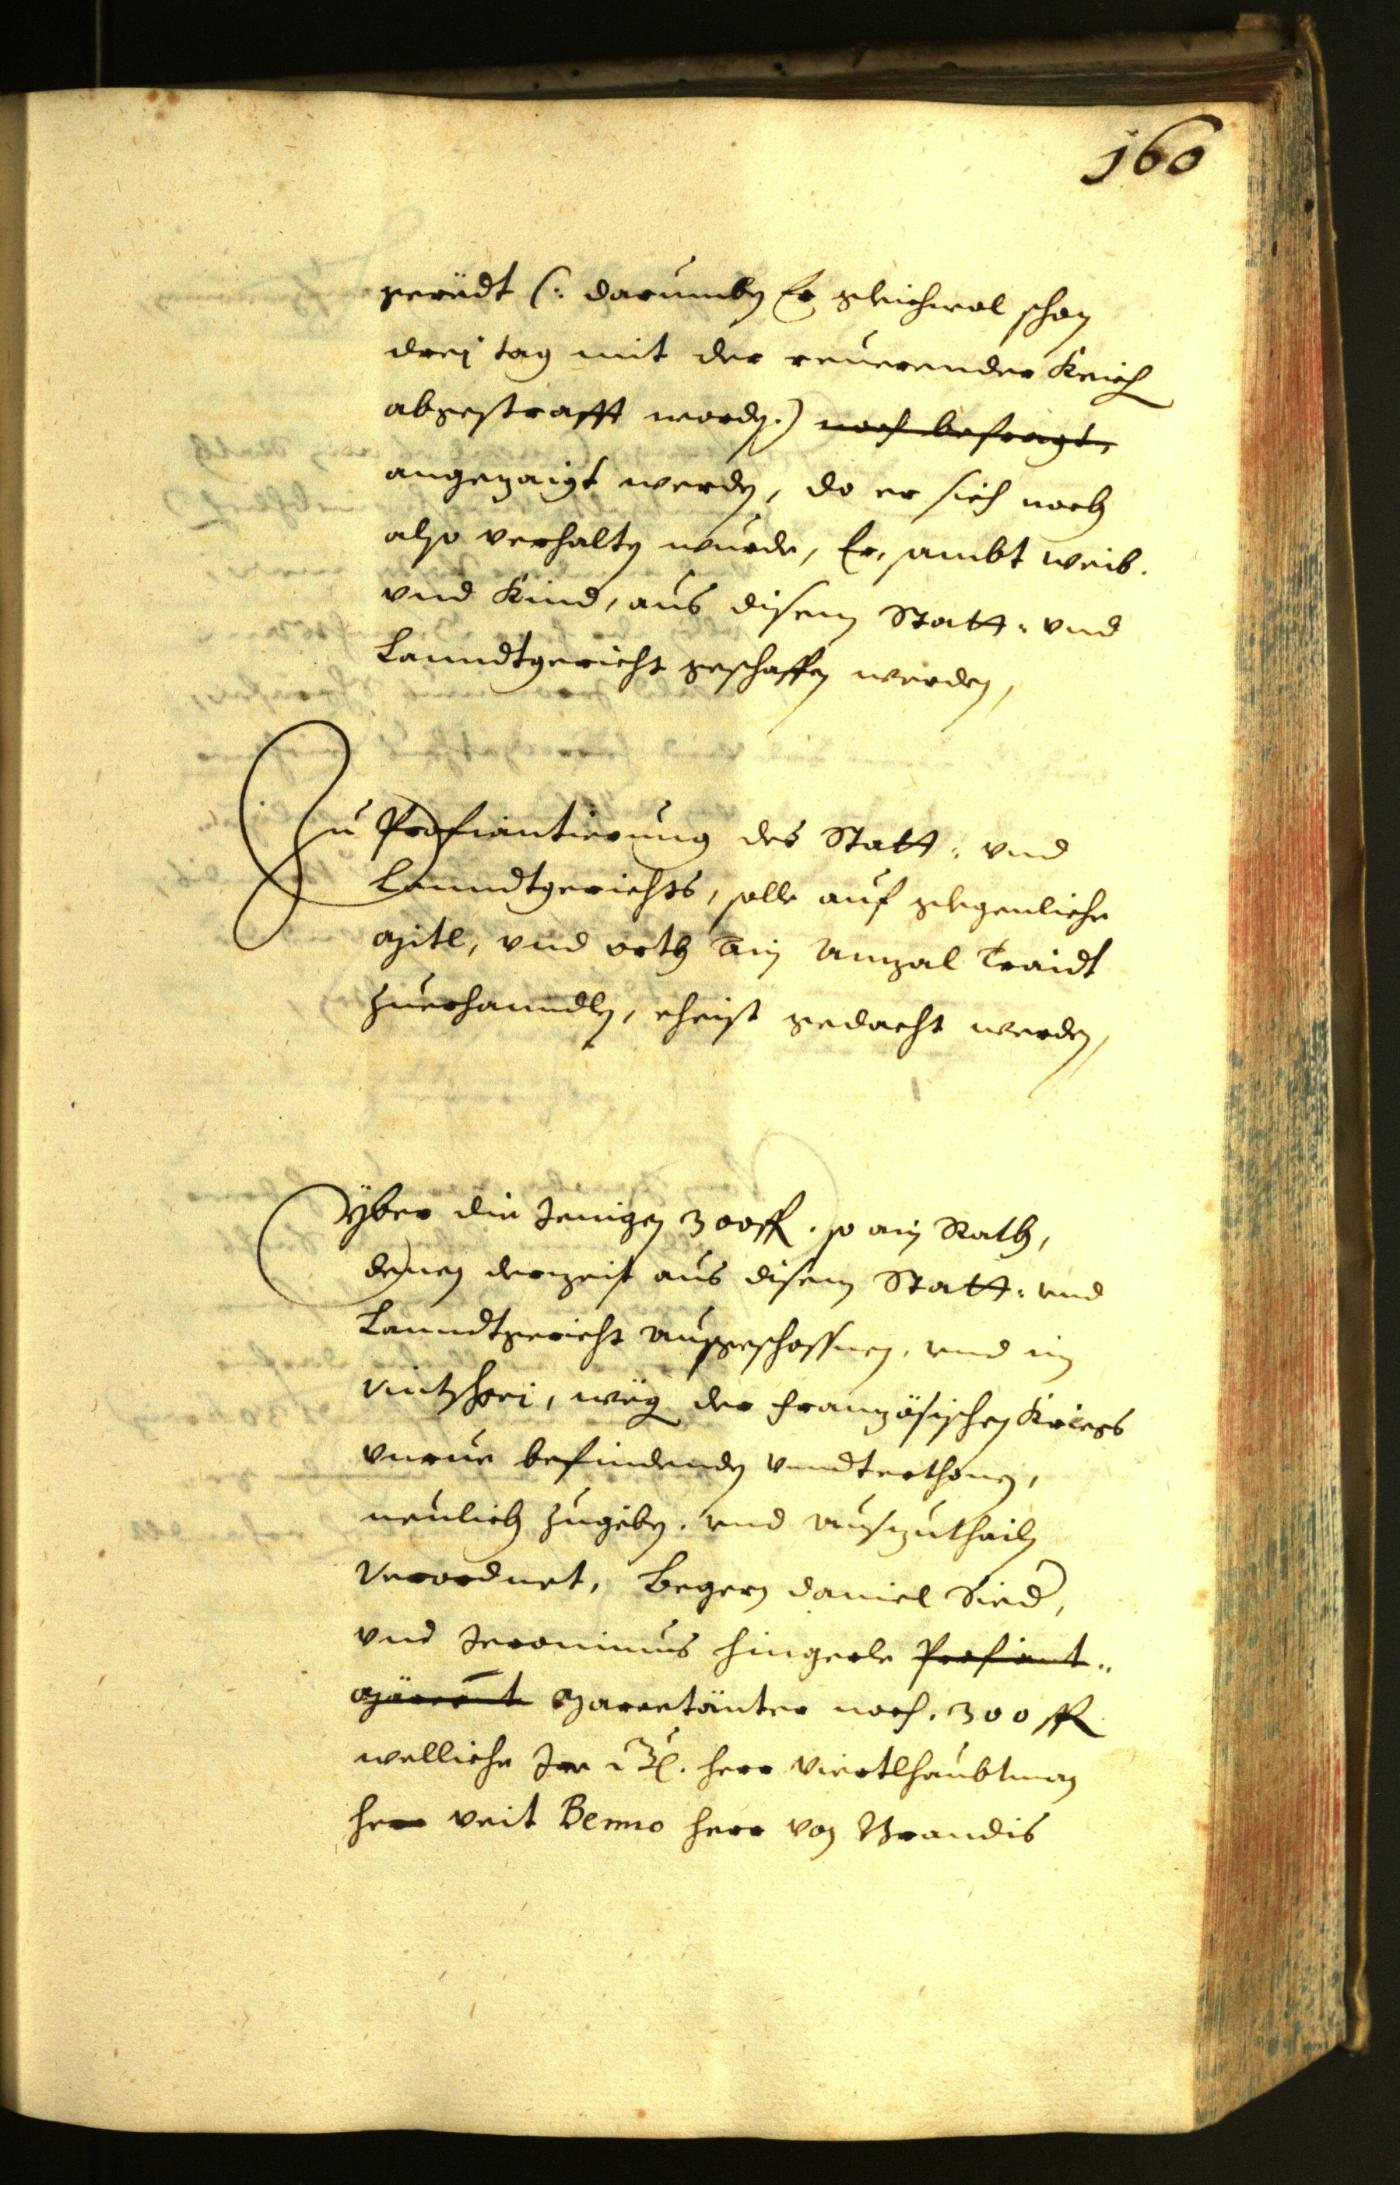 160
geredt (: darumben Er gleichwol schon
drei tag mit der reuerender Keich
abgestrafft worden:) noch befragt,
angezaigt werden, do er sich noch
also verhalten wurde, Er, sambt weib.
vnd Kind, aus disem Statt: vnd
Lanndtgericht geschaffen werden,
Zu Profiantierung des Statt: vnd
Lanndtgerichts, solle auf gelegenliche
mitl, vnd orth ain Anzal Traidt
zuerhanndlen, eheist gedacht werden,
Yber die Jenigen 300 fl. so ain Rath,
denen derzeit aus disem Statt: vnd
Lanndtgericht Ausgeschossnen, vnd im
Vintschgei, wegen der französischen Kriegs
vnrue befindenden vnndterthonen,
neulich zugeben, vnd auszuthailen
Verordnet, Begern Daniel
vnd Jeronimus Hingerle Profiant
Marretänter noch 300 fl
welliche Jr herr Viertlhaubtman
herr Veit Benno herr von Brandis